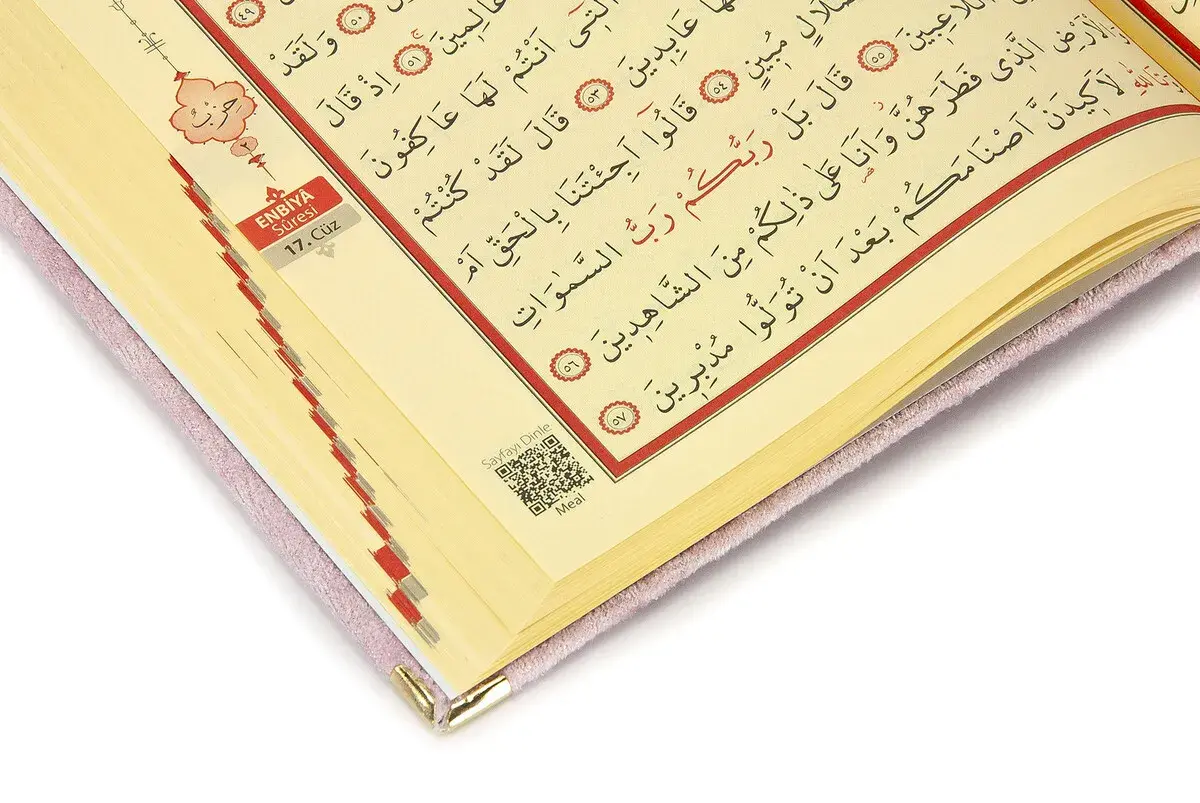 ٤٩
٥٠ وَلَقَدْ
عَالِمِينَ ٥١ اِذْ قَالَ
الَّتِى اَنْتُمْ لَهَا عَاكِفُونَ
لَهَا عَابِدِينَ ٥٣ قَالَ لَقَدْ كُنْتُمْ
مُبِينٍ ٥٤ قَالُوا اَجِئْتَنَا بِالْحَقِّ اَمْ
اللَّاعِبِينَ ٥٥ قَالَ بَلْ رَبُّكُمْ رَبُّ السَّمٰوَاتِ
وَالْاَرْضِ الَّذِى فَطَرَهُنَّ وَاَنَا عَلٰى ذٰلِكُمْ مِنَ الشَّاهِدِينَ ٥٦
لَاَكِيدَنَّ اَصْنَامَكُمْ بَعْدَ اَنْ تُوَلُّوا مُدْبِرِينَ ٥٧
حِزْبٌ
٢
ENBİYÂ
Sûresi
17. Cüz
Sayfayı Dinle
Meal